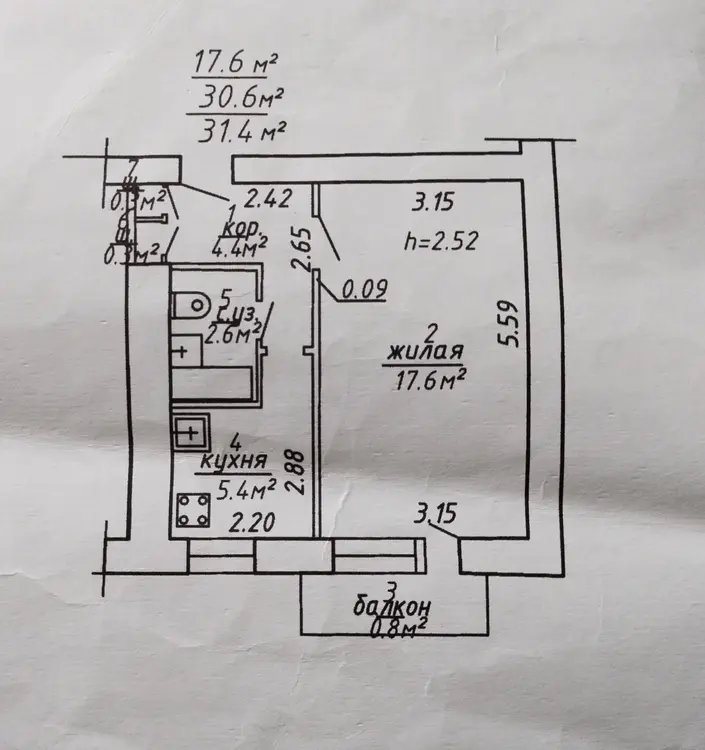 17.6 м²
30.6м²
31.4 м²
7
0.3м²
6
0.3м²
2.42
1
кор.
4.4м²
2.65
3.15
h=2.52
0.09
5.59
5
с.уз.
2.6м²
2
жилая
17.6м²
4
кухня
5.4м²
2.88
2.20
3.15
3
балкон
0.8м²